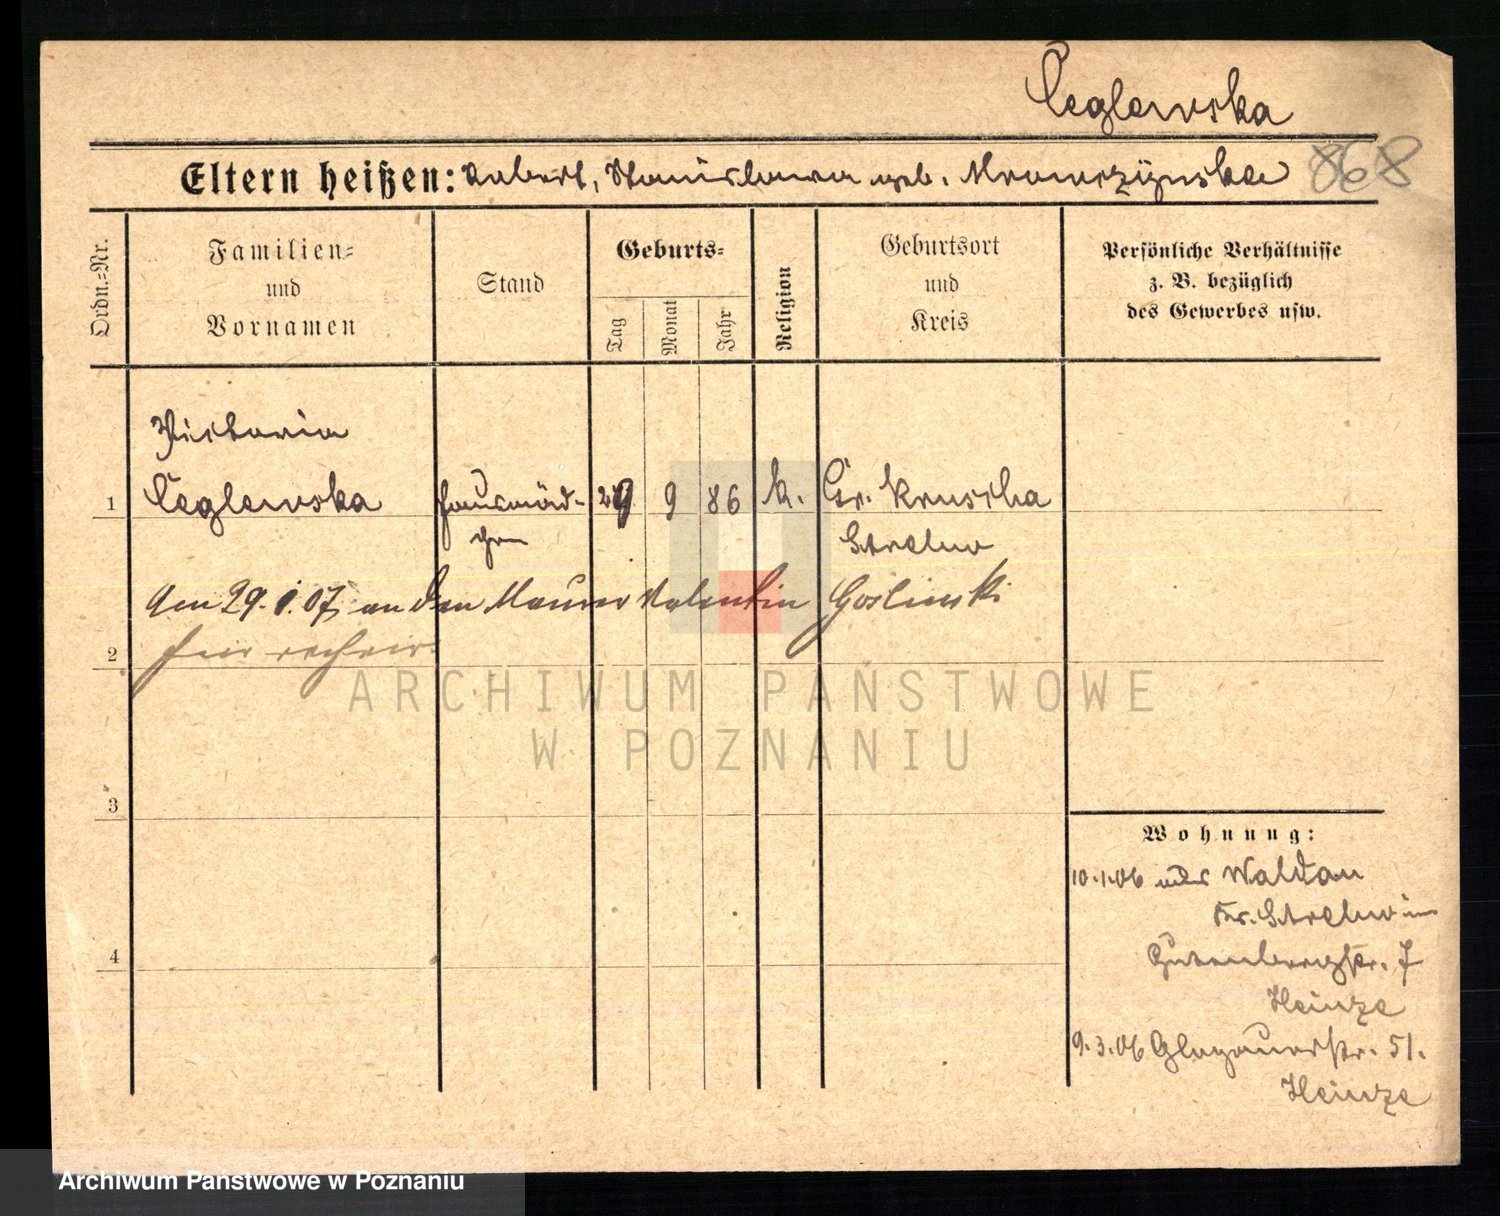 Ceglewska
868
Eltern heißen: Robert, Stanislawa geb. Mrowczynska
Ordn.-Nr.
Familien-
und
Vornamen
Stand
Geburts-
Tag
Monat
Jahr
Religion
Geburtsort
und
Kreis
Persönliche Verhältnisse
z. B. bezüglich
des Gewerbes usw.
Victoria
1 Ceglewska Hausmäd- 9 86 k. Gr. Kruscha
chen Strelno
Am 29. 07 an den Maurer Valentin Goslinski
2
ARCHIWUM PAŃSTWOWE
W POZNANIU
3
4
Wohnung:
10.1.06 Waldau
Kr. Strelno
Gutenbergstr. 7
Heinze
9.3.06 Glogauerstr. 51.
Heinze
Archiwum Państwowe w Poznaniu